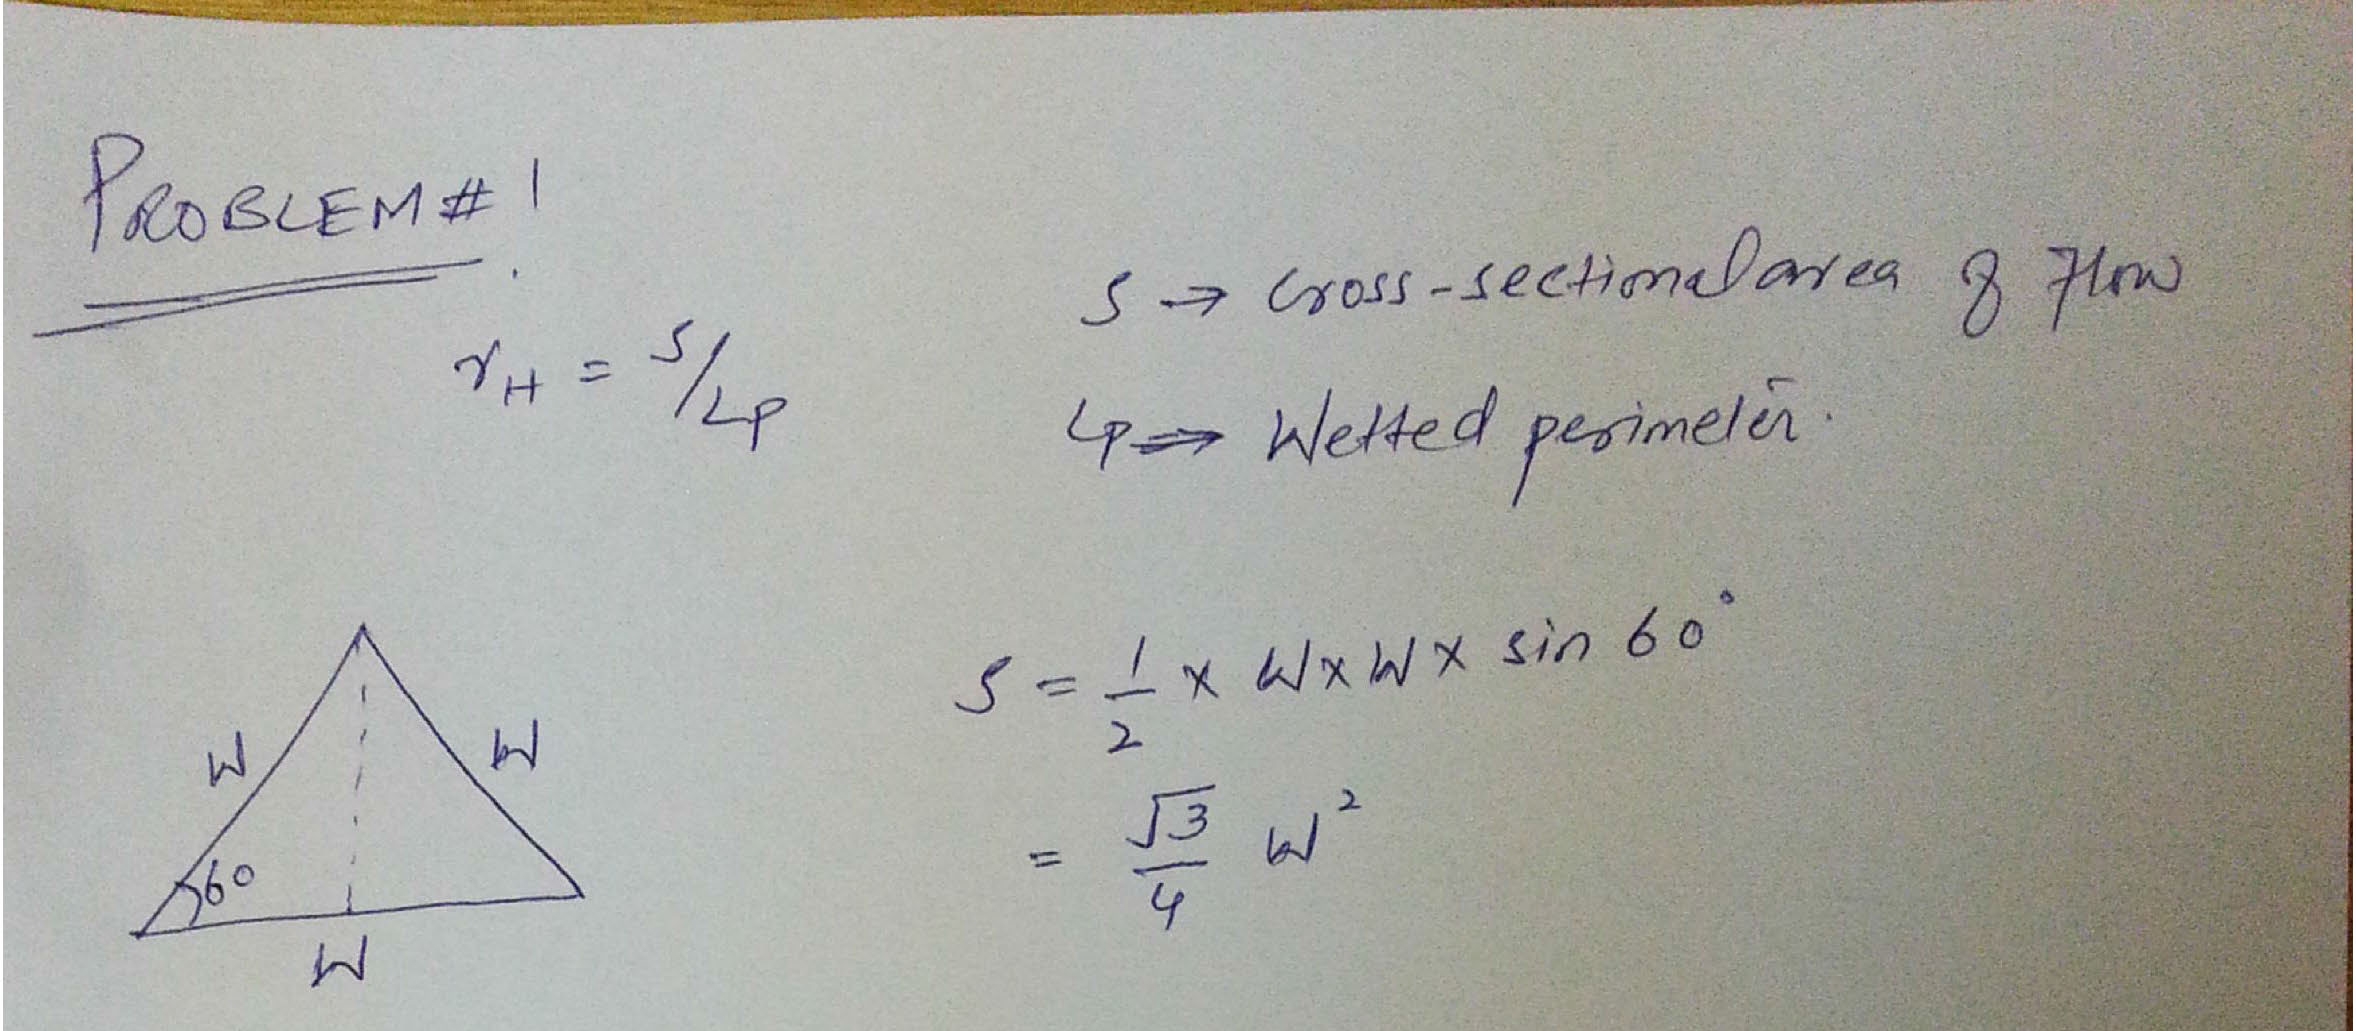 PROBLEM # 1
r_H = S/Lp
S → Cross-sectional area of Flow
Lp ⇒ Wetted perimeter.
W
W
60
W
S = 1/2 × W × W × sin 60°
= √3/4 W²